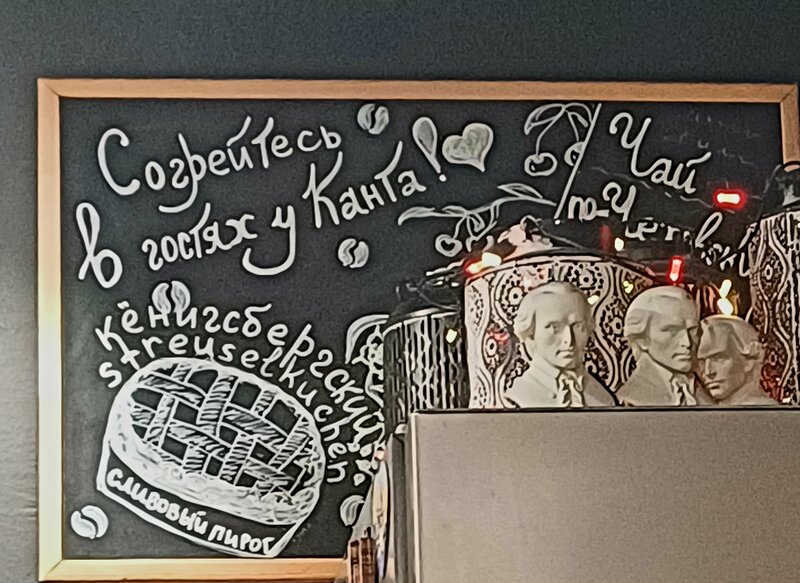 Согрейтесь
в гостях у Канта!
Чай
по-
Кёнигсбергский
streuselkuchen
сливовый пирог